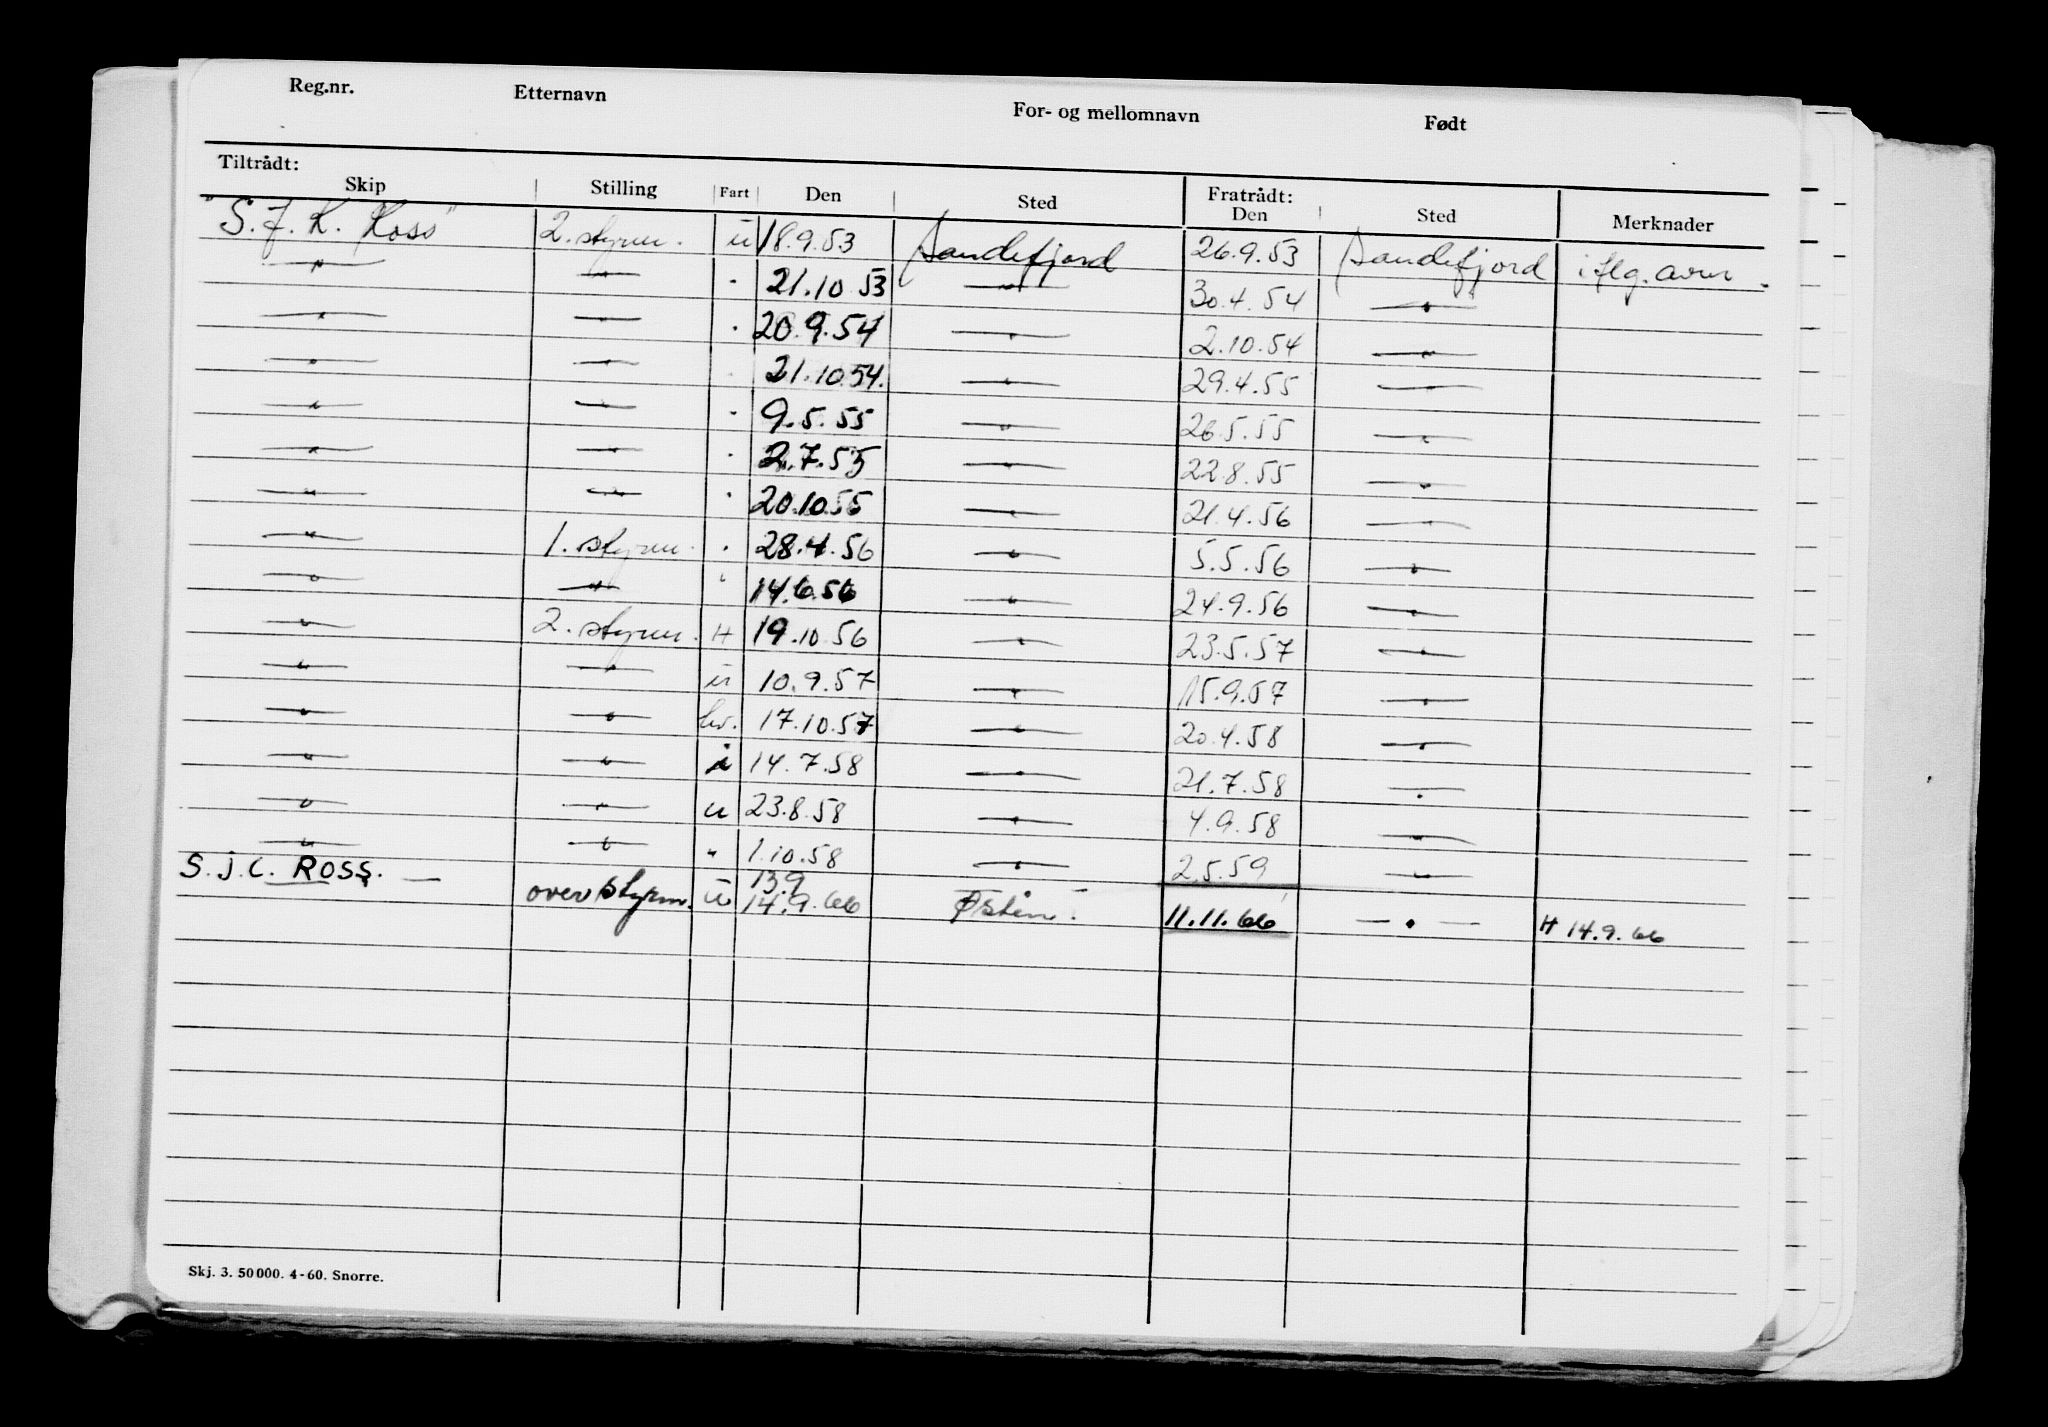 Reg.nr. Etternavn For- og mellomnavn Født
Tiltrådt: Fratrådt:
Skip Stilling Fart Den Sted Den Sted Merknader
"S. J. K. Ross" 2. styrm. u 18.9.53 Sandefjord 26.9.53 Sandefjord i flg. avm.
—"— —"— " 21.10 53 —"— 30.4.54 —"—
—"— —"— " 20.9.54 —"— 2.10.54 —"—
—"— —"— 21.10.54. —"— 29.4.55 —"—
—"— —"— " 9.5.55 —"— 26.5.55 —"—
—"— —"— " 2.7.55 —"— 22.8.55 —"—
—"— —"— " 20.10.55 —"— 21.4.56 —"—
—"— 1. styrm. " 28.4.56 —"— 5.5.56 —"—
—"— —"— " 14.6.56 —"— 24.9.56 —"—
—"— 2. styrm. H 19.10.56 —"— 23.5.57 —"—
—"— —"— u 10.9.57 —"— 15.9.57 —"—
—"— —"— hv. 17.10.57 —"— 20.4.58 —"—
—"— —"— i 14.7.58 —"— 21.7.58 —"—
—"— —"— u 23.8.58 —"— 4.9.58 —"—
—"— —"— " 1.10.58 —"— 2.5.59 —"—
S.J.C. ROSS. — overstyrm. u 13.9 14.9.66 11.11.66 —"— H 14.9.66
Skj. 3. 50000. 4-60. Snorre.